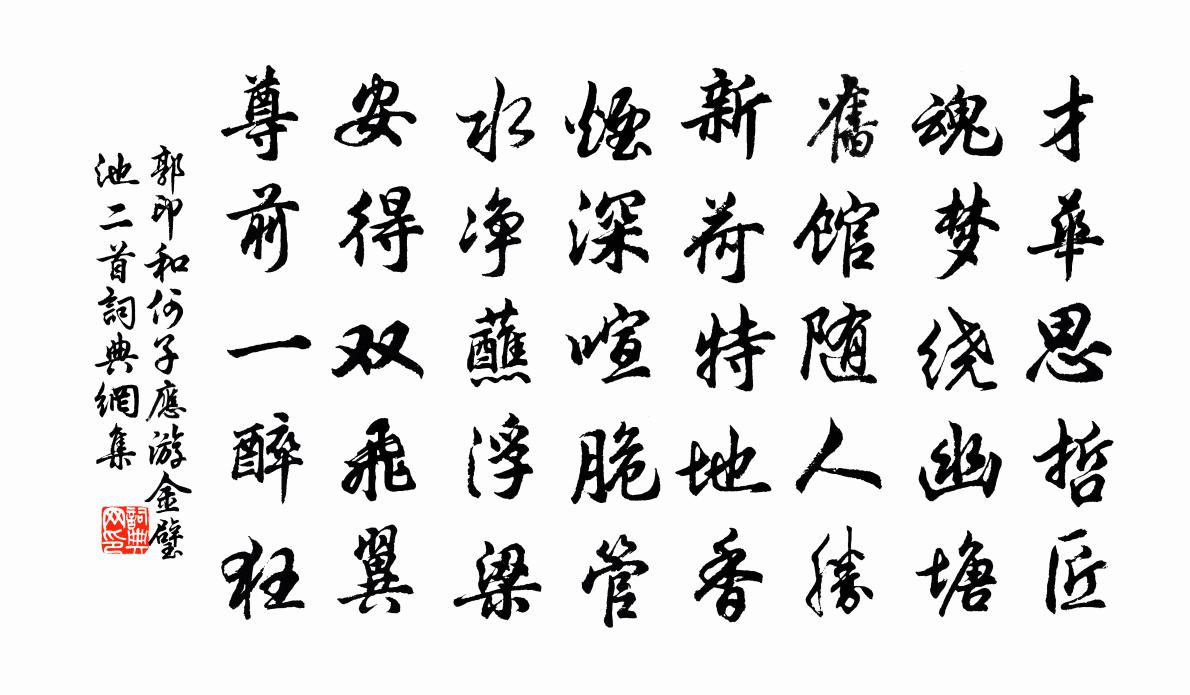 才華思哲匠
魂梦绕幽塘
舊馆随人勝
新荷特地香
煙深喧脆管
水净蘸浮梁
安得双飛翼
尊前一醉狂
郭印和何子應游金璧
池二首詞典網集
詞典网印